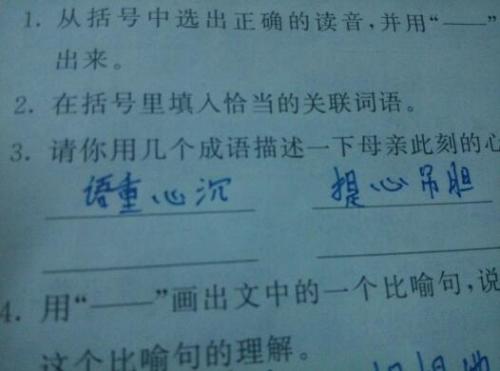 1. 从括号中选出正确的读音,并用“——”
出来。
2. 在括号里填入恰当的关联词语。
3. 请你用几个成语描述一下母亲此刻的心
语重心沉 提心吊胆
4. 用“——”画出文中的一个比喻句,说
这个比喻句的理解。